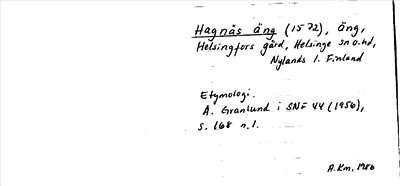 Hagnäs äng (1572), äng,
Helsingfors gård, Helsinge sn o. hd,
Nylands l. Finland
Etymologi.
A. Granlund i SNF 44 (1956),
s. 168 n. 1.
A. Km. 1986